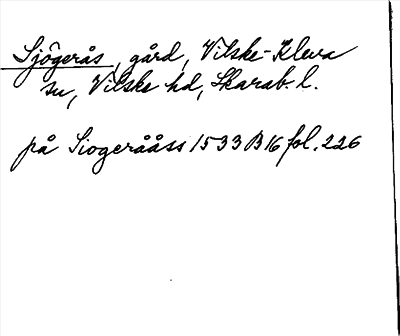 Sjögerås, gård, Vilske-Kleva
sn, Vilske hd, Skarab. l.
på Siogerååss 1533 B16 fol. 226